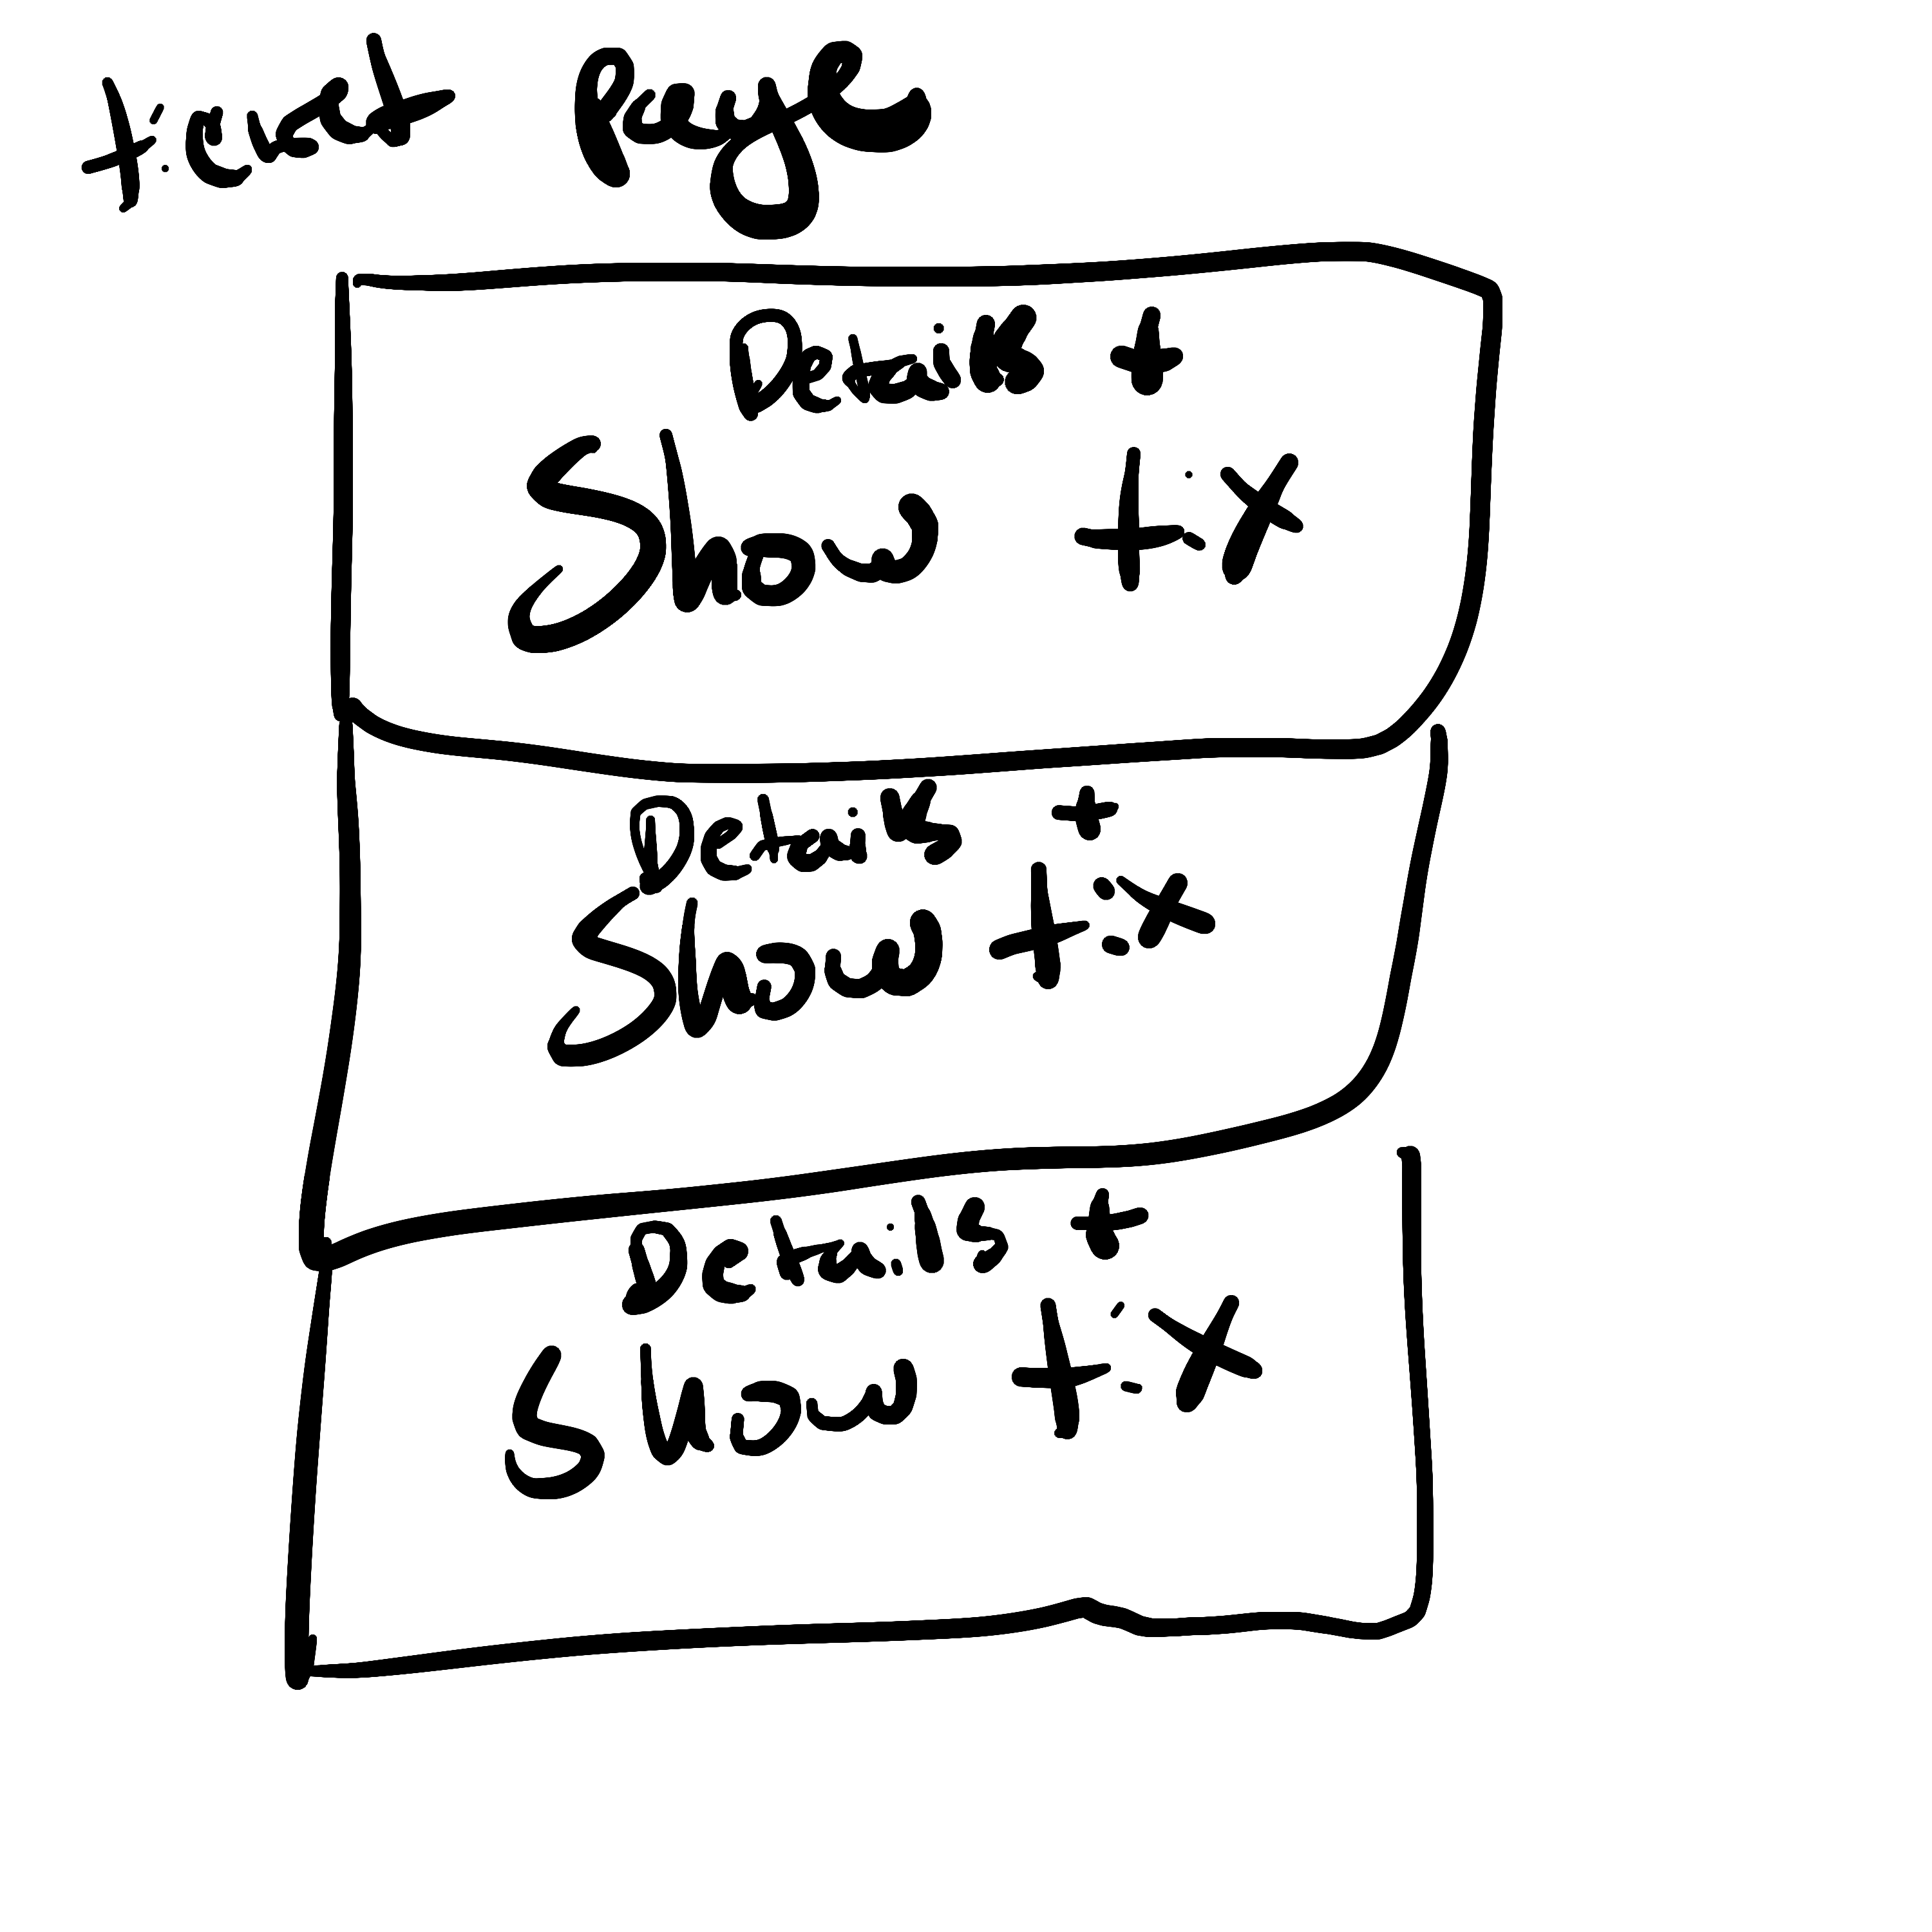 ticket Page
Details +
Show tix
Details +
Show tix
Details +
Show tix